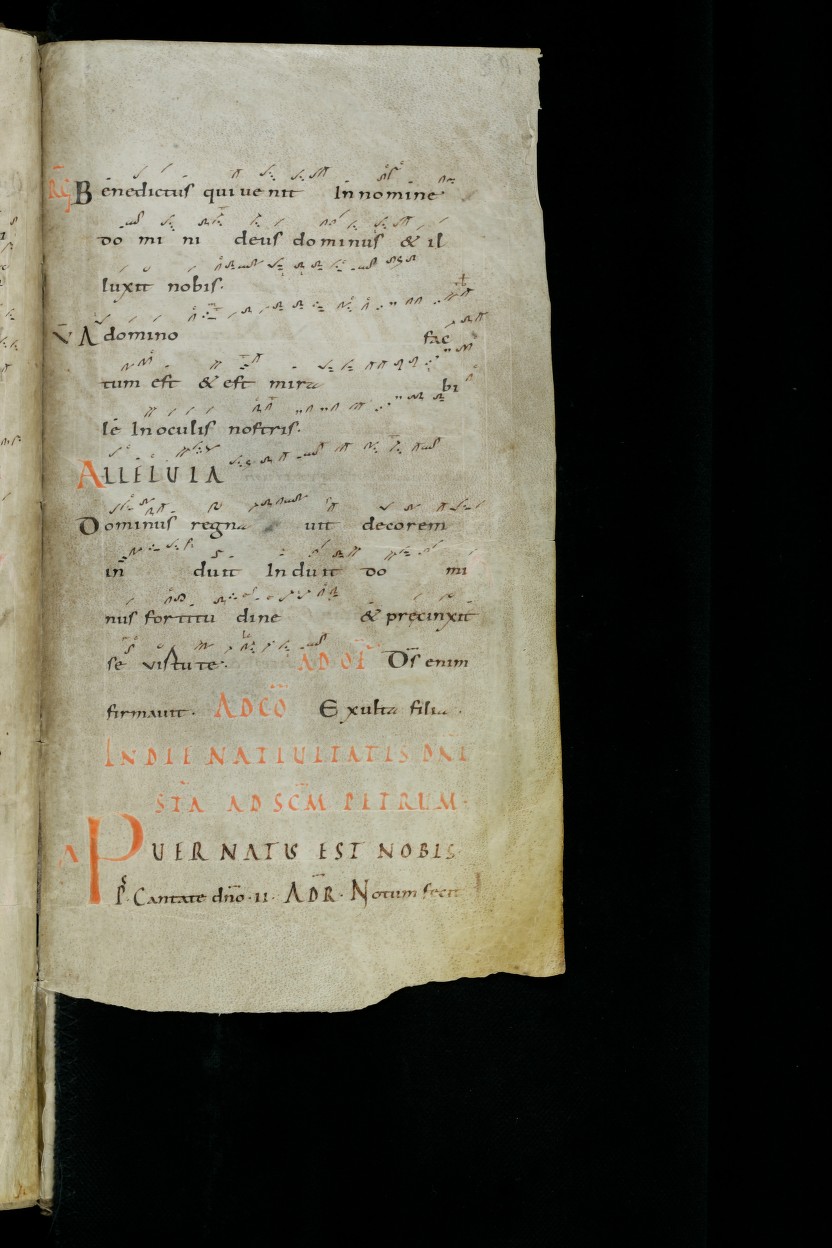 RG Benedictus qui uenit In nomine
do mi ni deus dominus & il
luxit nobis.
V A domino fac
tum est & est mira bi
le In oculis nostris.
ALLELUIA
Dominus regna uit decorem
in duit Induit do mi
nus fortitu dine & precinxit
se uirtute. AD OF D̄s enim
firmauit. AD CŌ Exulta filia.
IN DIE NATIUITATIS DNI
STA AD SCM PETRUM.
A PUER NATUS EST NOBIS
Ps. Cantate dn̄o. II. AD R. Notum fecit